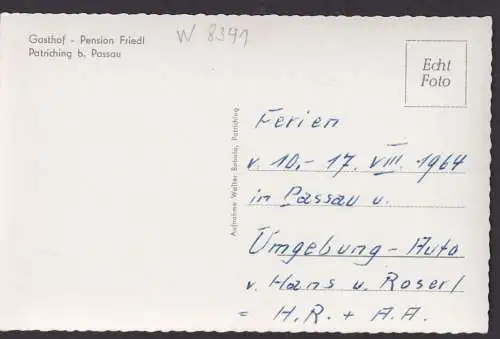 Gasthof - Pension Friedl
Patriching b. Passau
W 8391
Echt
Foto
Aufnahme Walter Bahala, Patriching
Ferien
v. 10.- 17. VIII. 1964
in Passau u.
Umgebung - Auto
v. Hans u. Roserl
= H. R. + A. A.